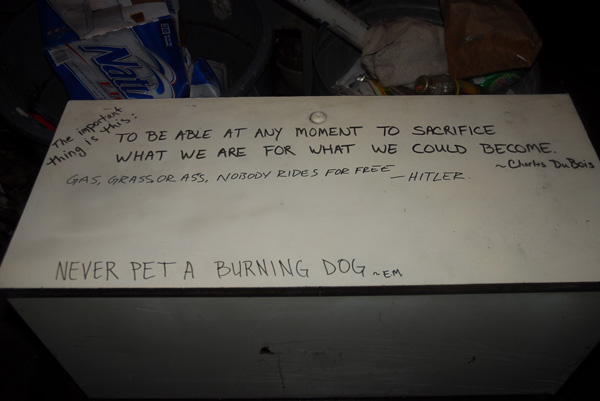 Natu
The important
thing is this:
TO BE ABLE AT ANY MOMENT TO SACRIFICE
WHAT WE ARE FOR WHAT WE COULD BECOME.
~Charles DuBois
GAS, GRASS OR ASS, NOBODY RIDES FOR FREE —HITLER.
NEVER PET A BURNING DOG ~EM